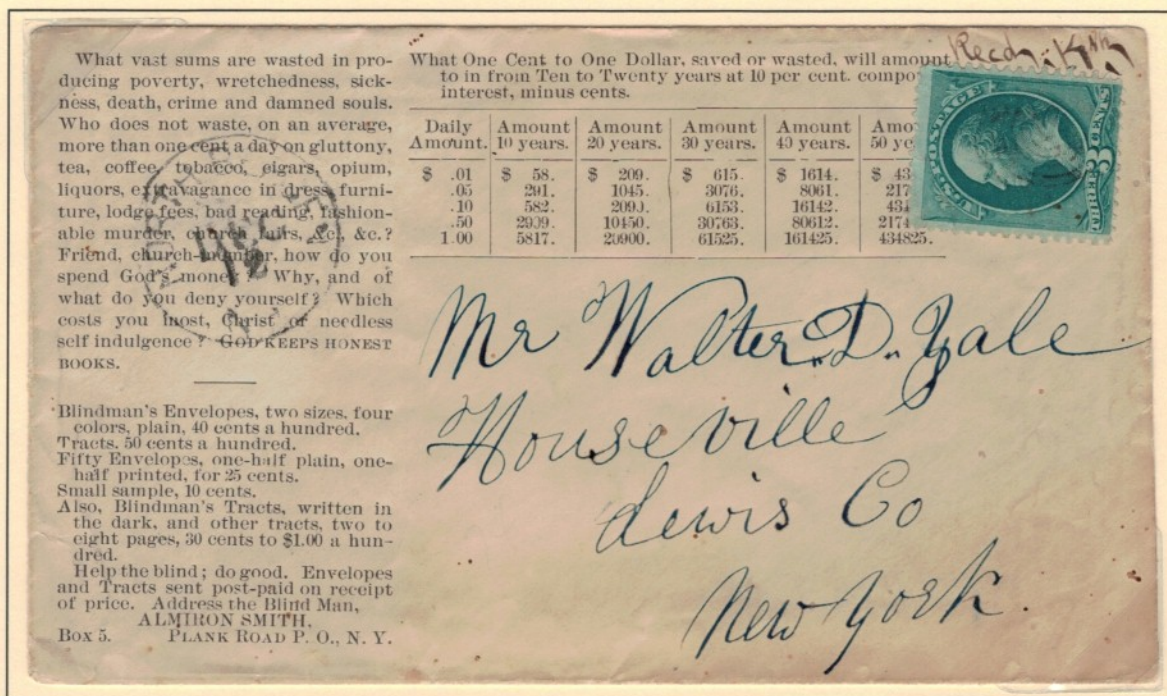 What vast sums are wasted in pro-
ducing poverty, wretchedness, sick-
ness, death, crime and damned souls.
Who does not waste, on an average,
more than one cent a day on gluttony,
tea, coffee, tobacco, cigars, opium,
liquors, extravagance in dress, furni-
ture, lodge fees, bad reading, fashion-
able murder, church fairs, &c., &c.?
Friend, church-member, how do you
spend God's money? Why, and of
what do you deny yourself? Which
costs you most, Christ or needless
self indulgence? GOD KEEPS HONEST
BOOKS.
Blindman's Envelopes, two sizes, four
colors, plain, 40 cents a hundred.
Tracts, 50 cents a hundred.
Fifty Envelopes, one-half plain, one-
half printed, for 25 cents.
Small sample, 10 cents.
Also, Blindman's Tracts, written in
the dark, and other tracts, two to
eight pages, 30 cents to $1.00 a hun-
dred.
Help the blind; do good. Envelopes
and Tracts sent post-paid on receipt
of price. Address the Blind Man,
ALMIRON SMITH,
Box 5. PLANK ROAD P. O., N. Y.
What One Cent to One Dollar, saved or wasted, will amount
to in from Ten to Twenty years at 10 per cent.
interest, minus cents.
Daily Amount. Amount 10 years. Amount 20 years. Amount 30 years. Amount 40 years. 50
$ .01 $ 58. $ 209. $ 615. $ 1614. $
.05 291. 1045. 3076. 8061.
.10 582. 2090. 6153. 16142.
.50 2909. 10450. 30763. 80612.
1.00 5817. 20900. 61525. 161425. 434825.
Recd.
U.S. POSTAGE
3
Mr Walter. D. Yale
Houseville
Lewis Co
New York.